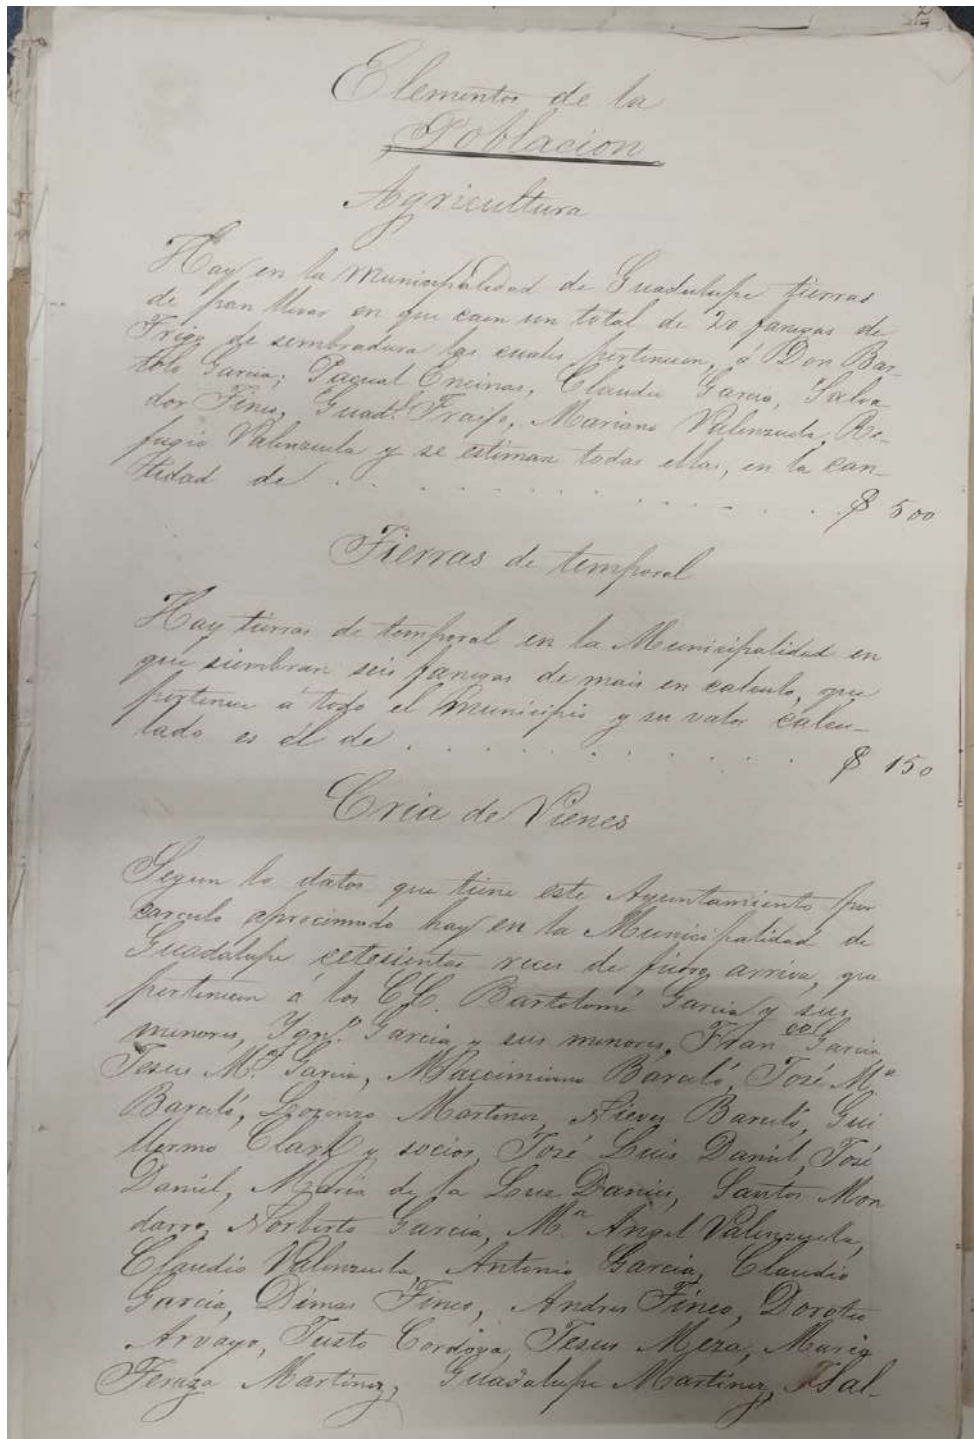 Elementos de la
Poblacion
Agricultura
Hay en la Municipalidad de Guadalupe tierras
de pan llevar en que caen un total de 20 fanegas de
Trigo de sembradura las cuales pertenecen, á Don Bar-
tolo Garcia; Pacual Encinas, Claudio Garcia, Salva-
dor Tineo, Guadl. Fraijo, Mariano Valenzuela, Re-
fugio Valenzuela y se estiman todas ellas, en la can-
tidad de . . . . . . . . . . . . $ 500
Tierras de temporal
Hay tierras de temporal en la Municipalidad en
que siembran seis fanegas de mais en calculo, que
pertenece á todo el Municipio y su valor calcu-
lado es él de . . . . . . . . . . $ 150
Cria de Vienes
Segun lo datos que tiene este Ayuntamiento por
carculo aprocimado hay en la Municipalidad de
Guadalupe cetesientas reces de fierro arriva, que
pertenecen á los C.C. Bartolomé Garcia y sus
menores, Ygno. Garcia y sus menores, Franco. Garcia,
Jesus Ma. Garcia, Maccimiano Barceló, José Ma
Barceló, Lorenzo Martinez, Nieves Barceló, Gui
llermo Clark y socios, José Luis Daniel, José
Daniel, Maria de la Luz Daniel, Santos Mon
darro, Norberto Garcia, Ml. Angel Valenzuela,
Claudio Valenzuela, Antonio Garcia, Claudio
Garcia, Dimas Tineo, Andres Tineo, Doroteo
Arvayo, Justo Cordova, Jesus Meza, Maria
Teraza Martinez, Guadalupe Martinez,